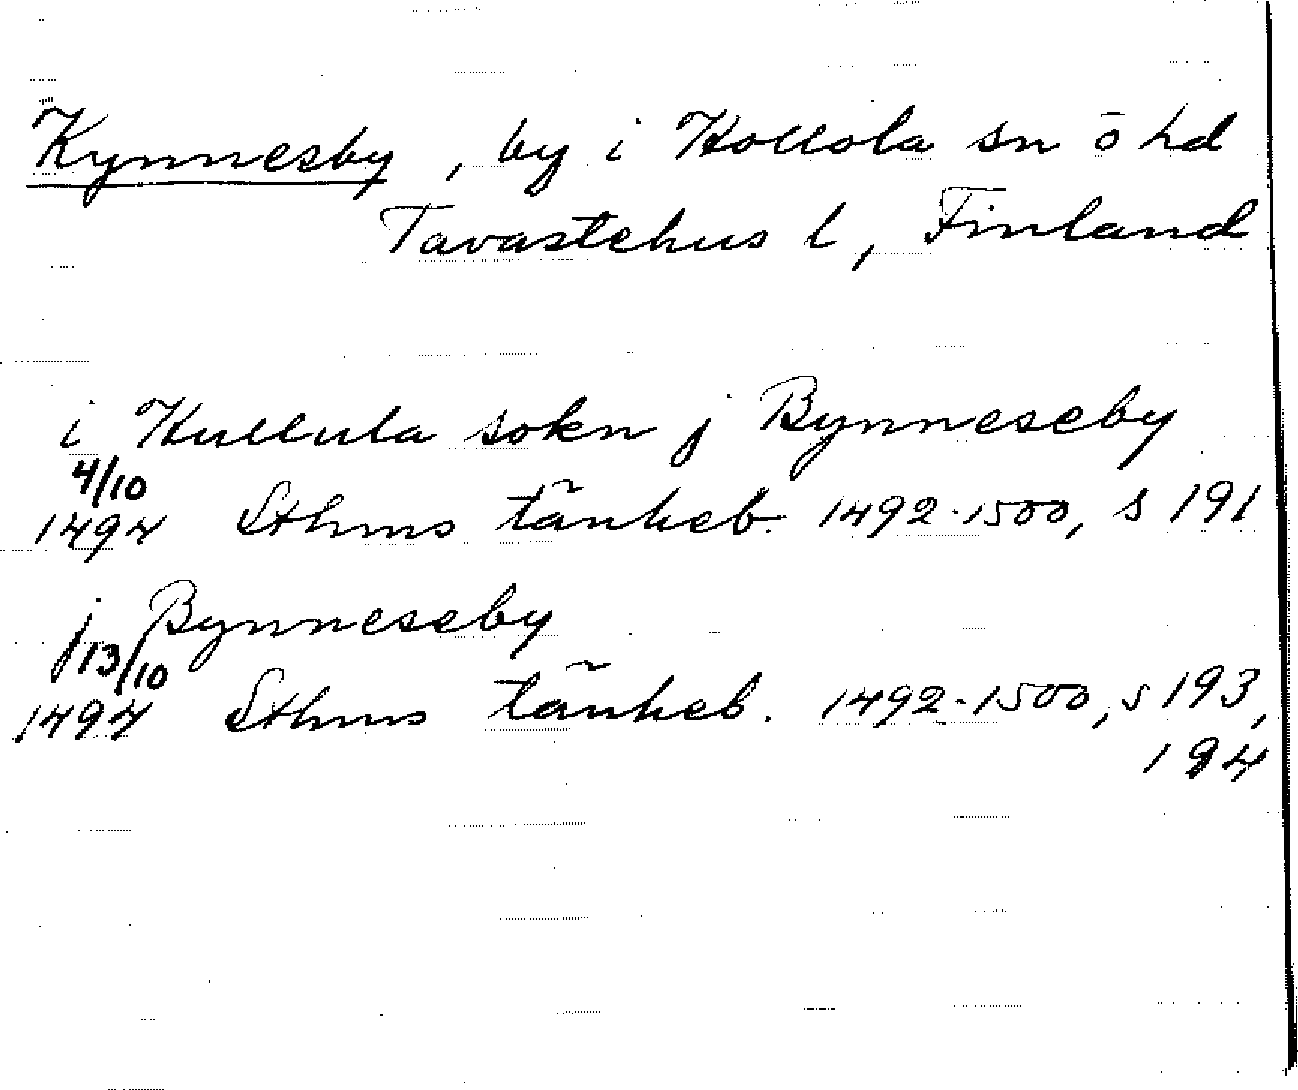 Kynnesby, by i Hollola sn o hd
Tavastehus l, Finland
i Hullula sokn j Bynneseby
4/10
1494 Sthms tänkeb. 1492-1500, s 191
j Bynneseby
13/10
1494 Sthms tänkeb. 1492-1500, s 193,
194